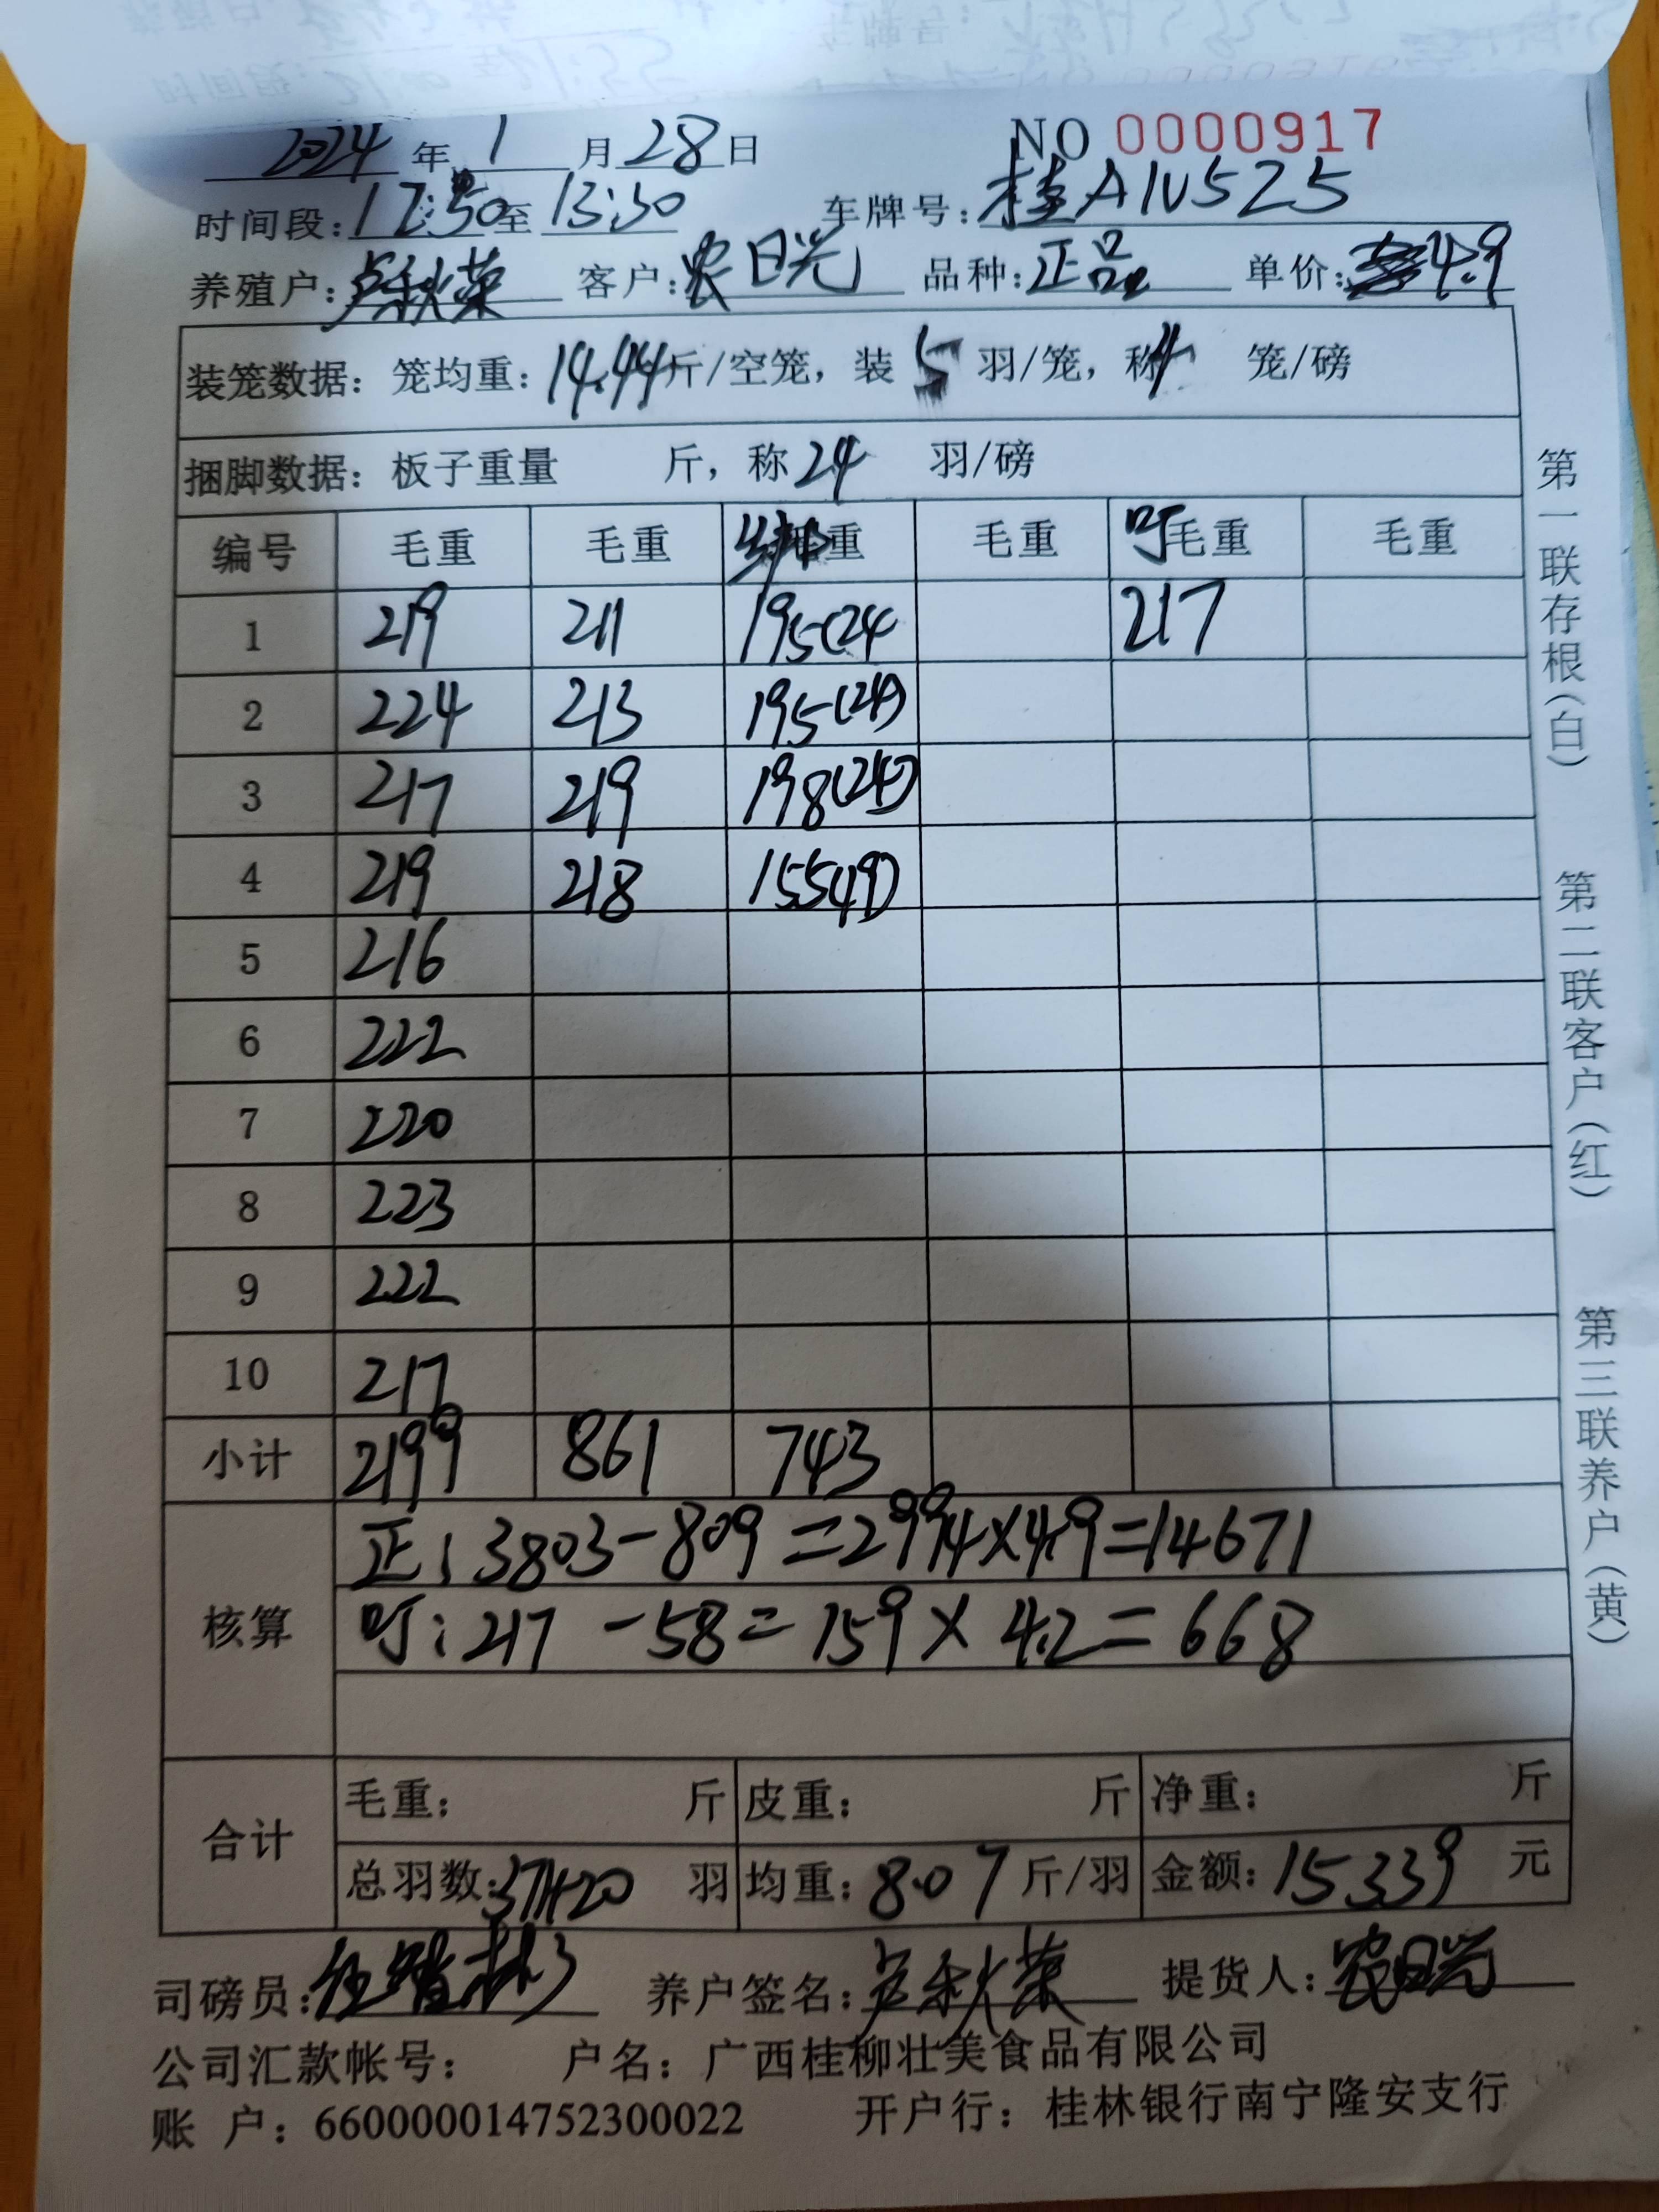 2024年1月28日 NO 0000917
时间段:12:30至13:30 车牌号:桂A1U525
养殖户:卢秋荣 客户:农日光 品种:正品 单价:4.9
装笼数据: 笼均重:14.44斤/空笼, 装5羽/笼, 称4笼/磅
捆脚数据: 板子重量 斤, 称24羽/磅
编号 毛重 毛重 绑毛重 毛重 叮毛重 毛重
1 219 211 195(24 217
2 224 213 195(24)
3 217 219 198(24)
4 219 218 155(19)
5 216
6 222
7 220
8 223
9 222
10 217
小计 2199 861 743
核算
正:3803-809=2994×4.9=14671
叮:217-58=159×4.2=668
合计
毛重: 斤 皮重: 斤 净重: 斤
总羽数:371+20羽 均重:8.07斤/羽 金额:15339元
司磅员: 养户签名:卢秋荣 提货人:农日光
公司汇款帐号: 户名:广西桂柳壮美食品有限公司
账 户:660000014752300022 开户行:桂林银行南宁隆安支行
第一联存根(白) 第二联客户(红) 第三联养户(黄)